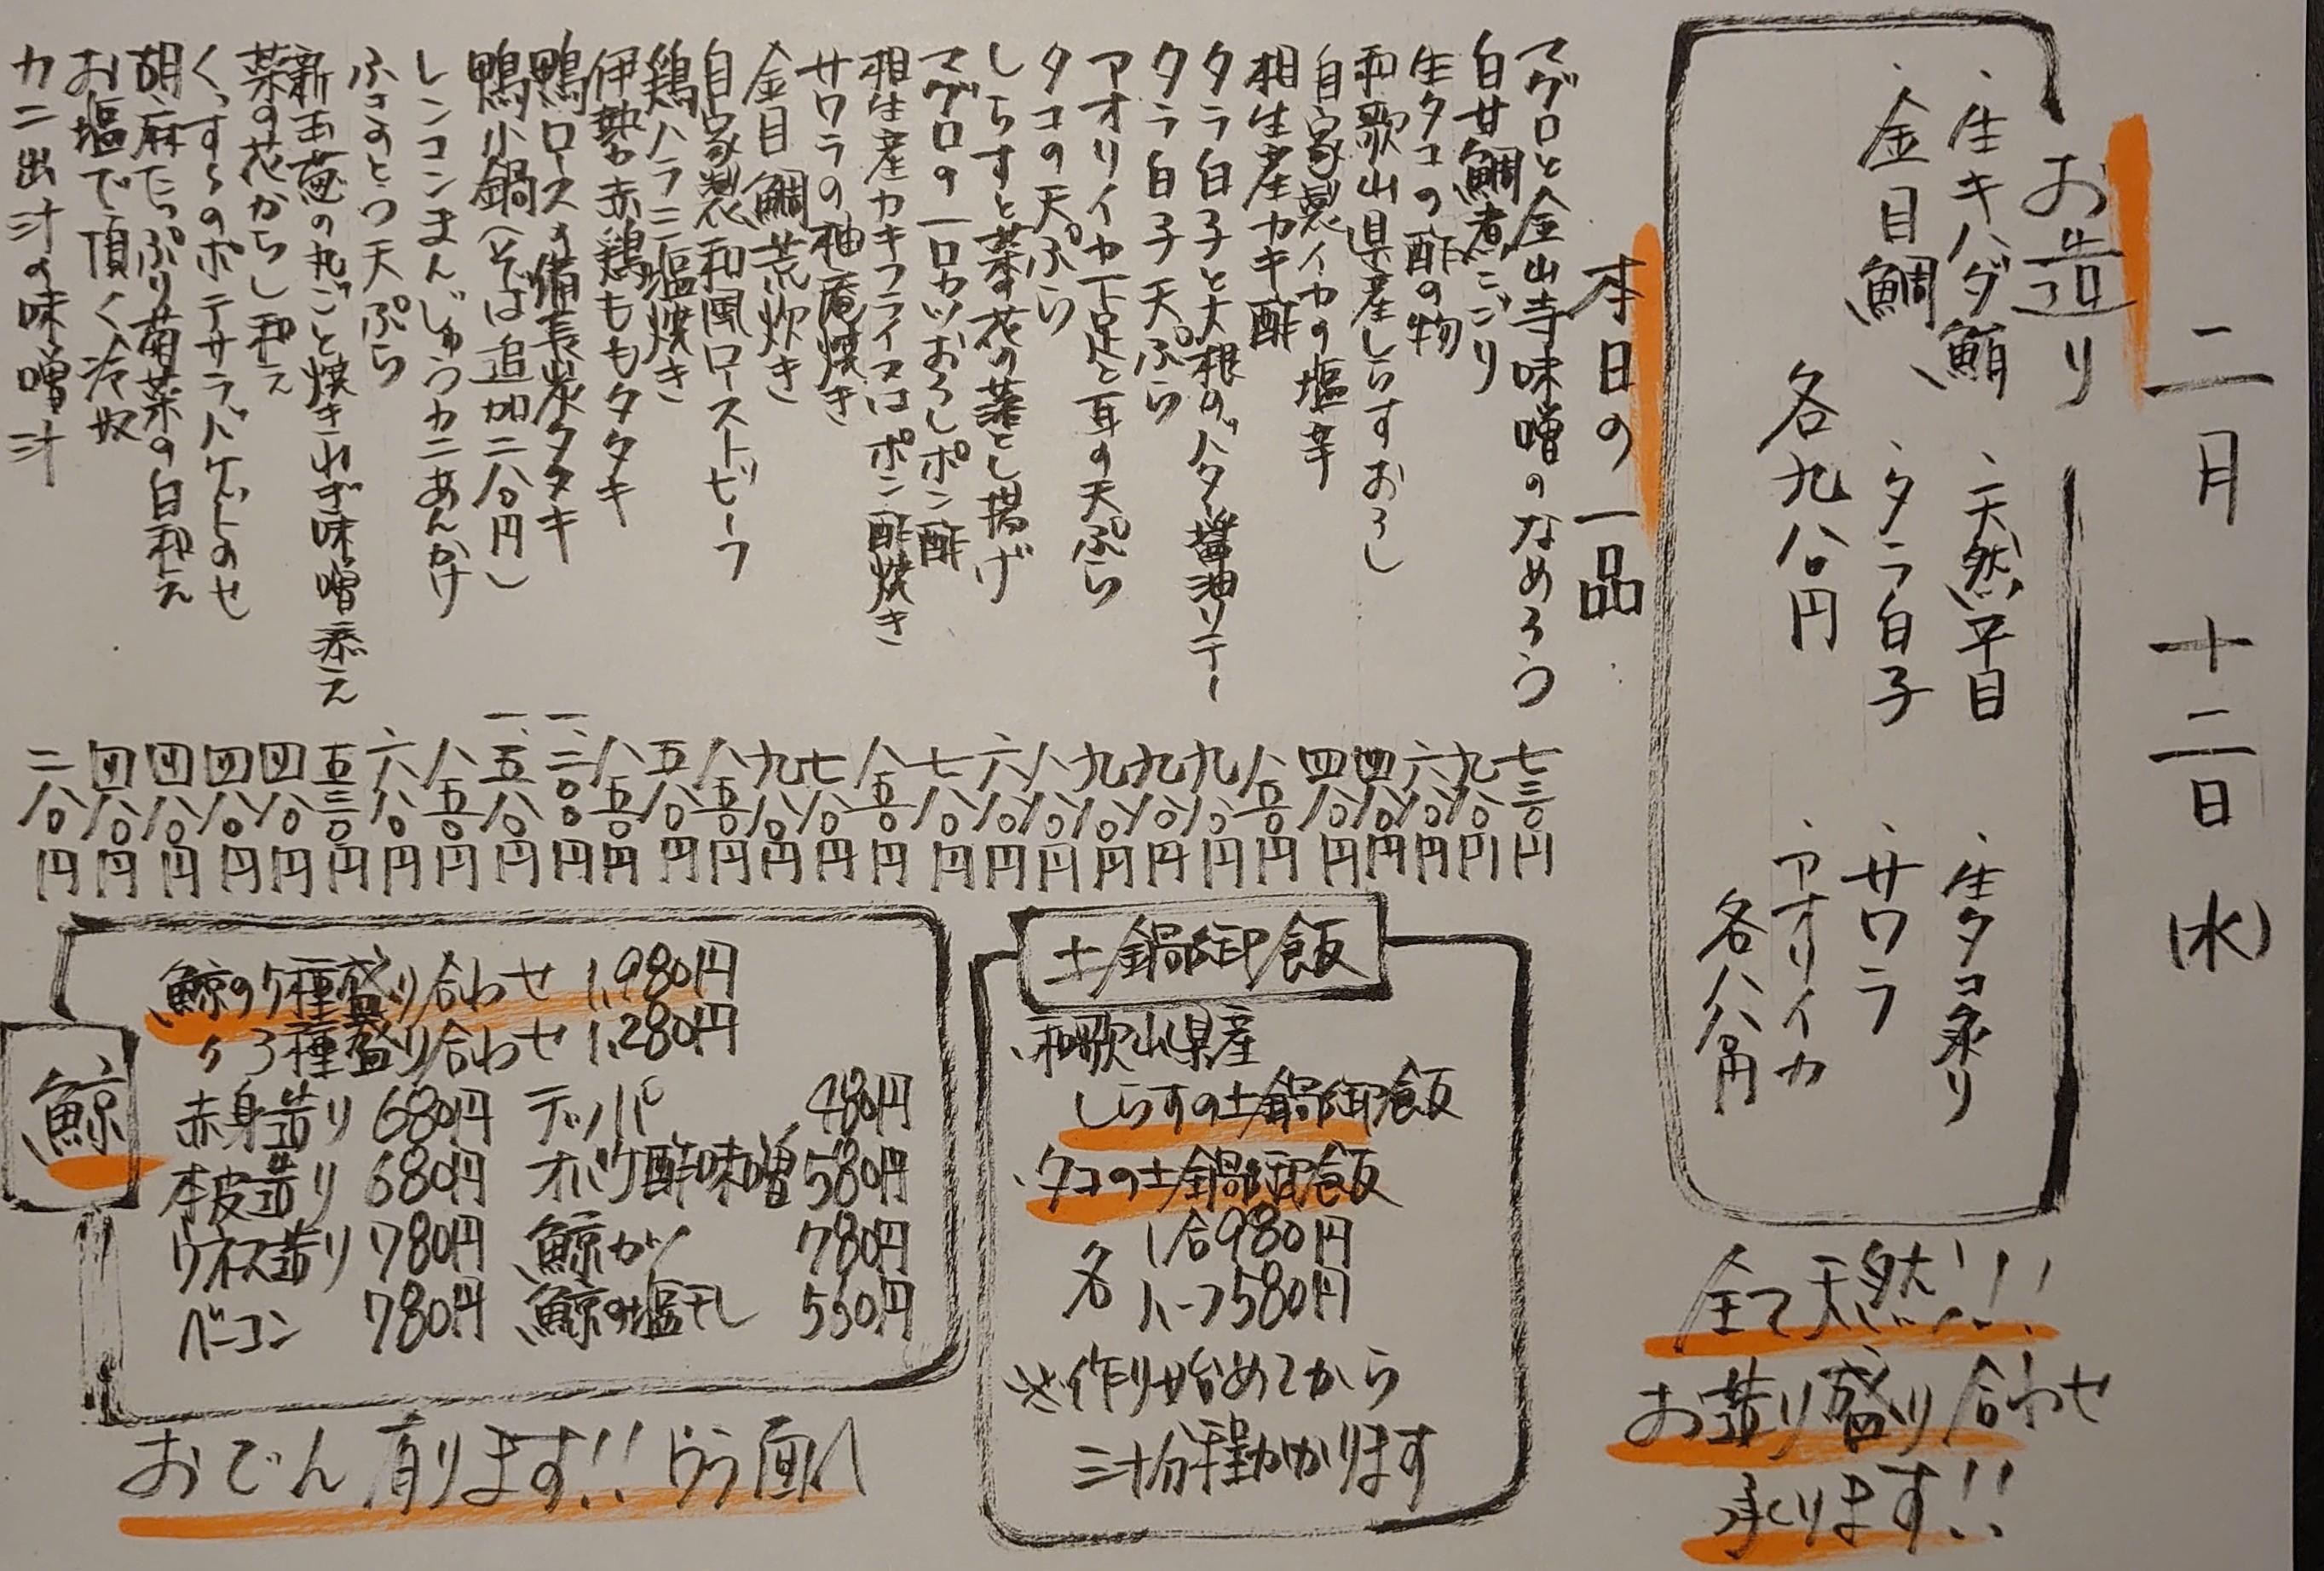 二月十二日(水)
お造り
・生キハダ鮪 ・天然平目 ・生タコ炙り
・金目鯛 ・タラ白子 ・サワラ
・アオリイカ
各九八〇円
各八八〇円
全て天然!!!
お造り盛り合わせ
承ります!!
本日の一品
マグロと金山寺味噌のなめろう 七三〇円
白甘鯛煮こごり 九八〇円
生タコの酢の物 六八〇円
和歌山県産しらすおろし 四八〇円
自家製イカの塩辛 四八〇円
相生産カキ酢 八五〇円
タラ白子と大根のバター醤油ソテー 九八〇円
タラ白子天ぷら 九八〇円
アオリイカ下足と耳の天ぷら 九八〇円
タコの天ぷら 八八〇円
しらすと菜の花の落とし揚げ 六八〇円
マグロの一口カツおろしポン酢 七八〇円
相生産カキフライ又はポン酢焼き 八五〇円
サワラの柚庵焼き 七八〇円
金目鯛荒炊き 九八〇円
自家製和風ローストビーフ 八五〇円
鶏ハラミ塩焼き 五八〇円
伊勢赤鶏ももタタキ 八五〇円
鴨ロースの備長炭タタキ 一、二〇〇円
鴨小鍋(そば追加二八〇円) 一、五八〇円
レンコンまんじゅうカニあんかけ 八五〇円
ふきのとう天ぷら 六八〇円
新玉葱の丸ごと焼きねぎ味噌添え 五三〇円
菜の花からし和え 四八〇円
くっすらのポテサラバゲットのせ 四八〇円
胡麻たっぷり菊菜の白和え 四八〇円
お塩で頂く冷奴 四八〇円
カニ出汁の味噌汁 二八〇円
土鍋御飯
・和歌山県産
しらすの土鍋御飯
・タコの土鍋御飯
各 1合980円
ハーフ580円
※作り始めてから
三十分程かかります
鯨
鯨の5種盛り合わせ 1,980円
〃 3種盛り合わせ 1,280円
赤身造り 680円 テッパ 480円
本皮造り 680円 オバケ酢味噌 580円
ウネス造り 780円 鯨カツ 780円
ベーコン 780円 鯨の塩干し 550円
おでん有ります!!ウラ面へ